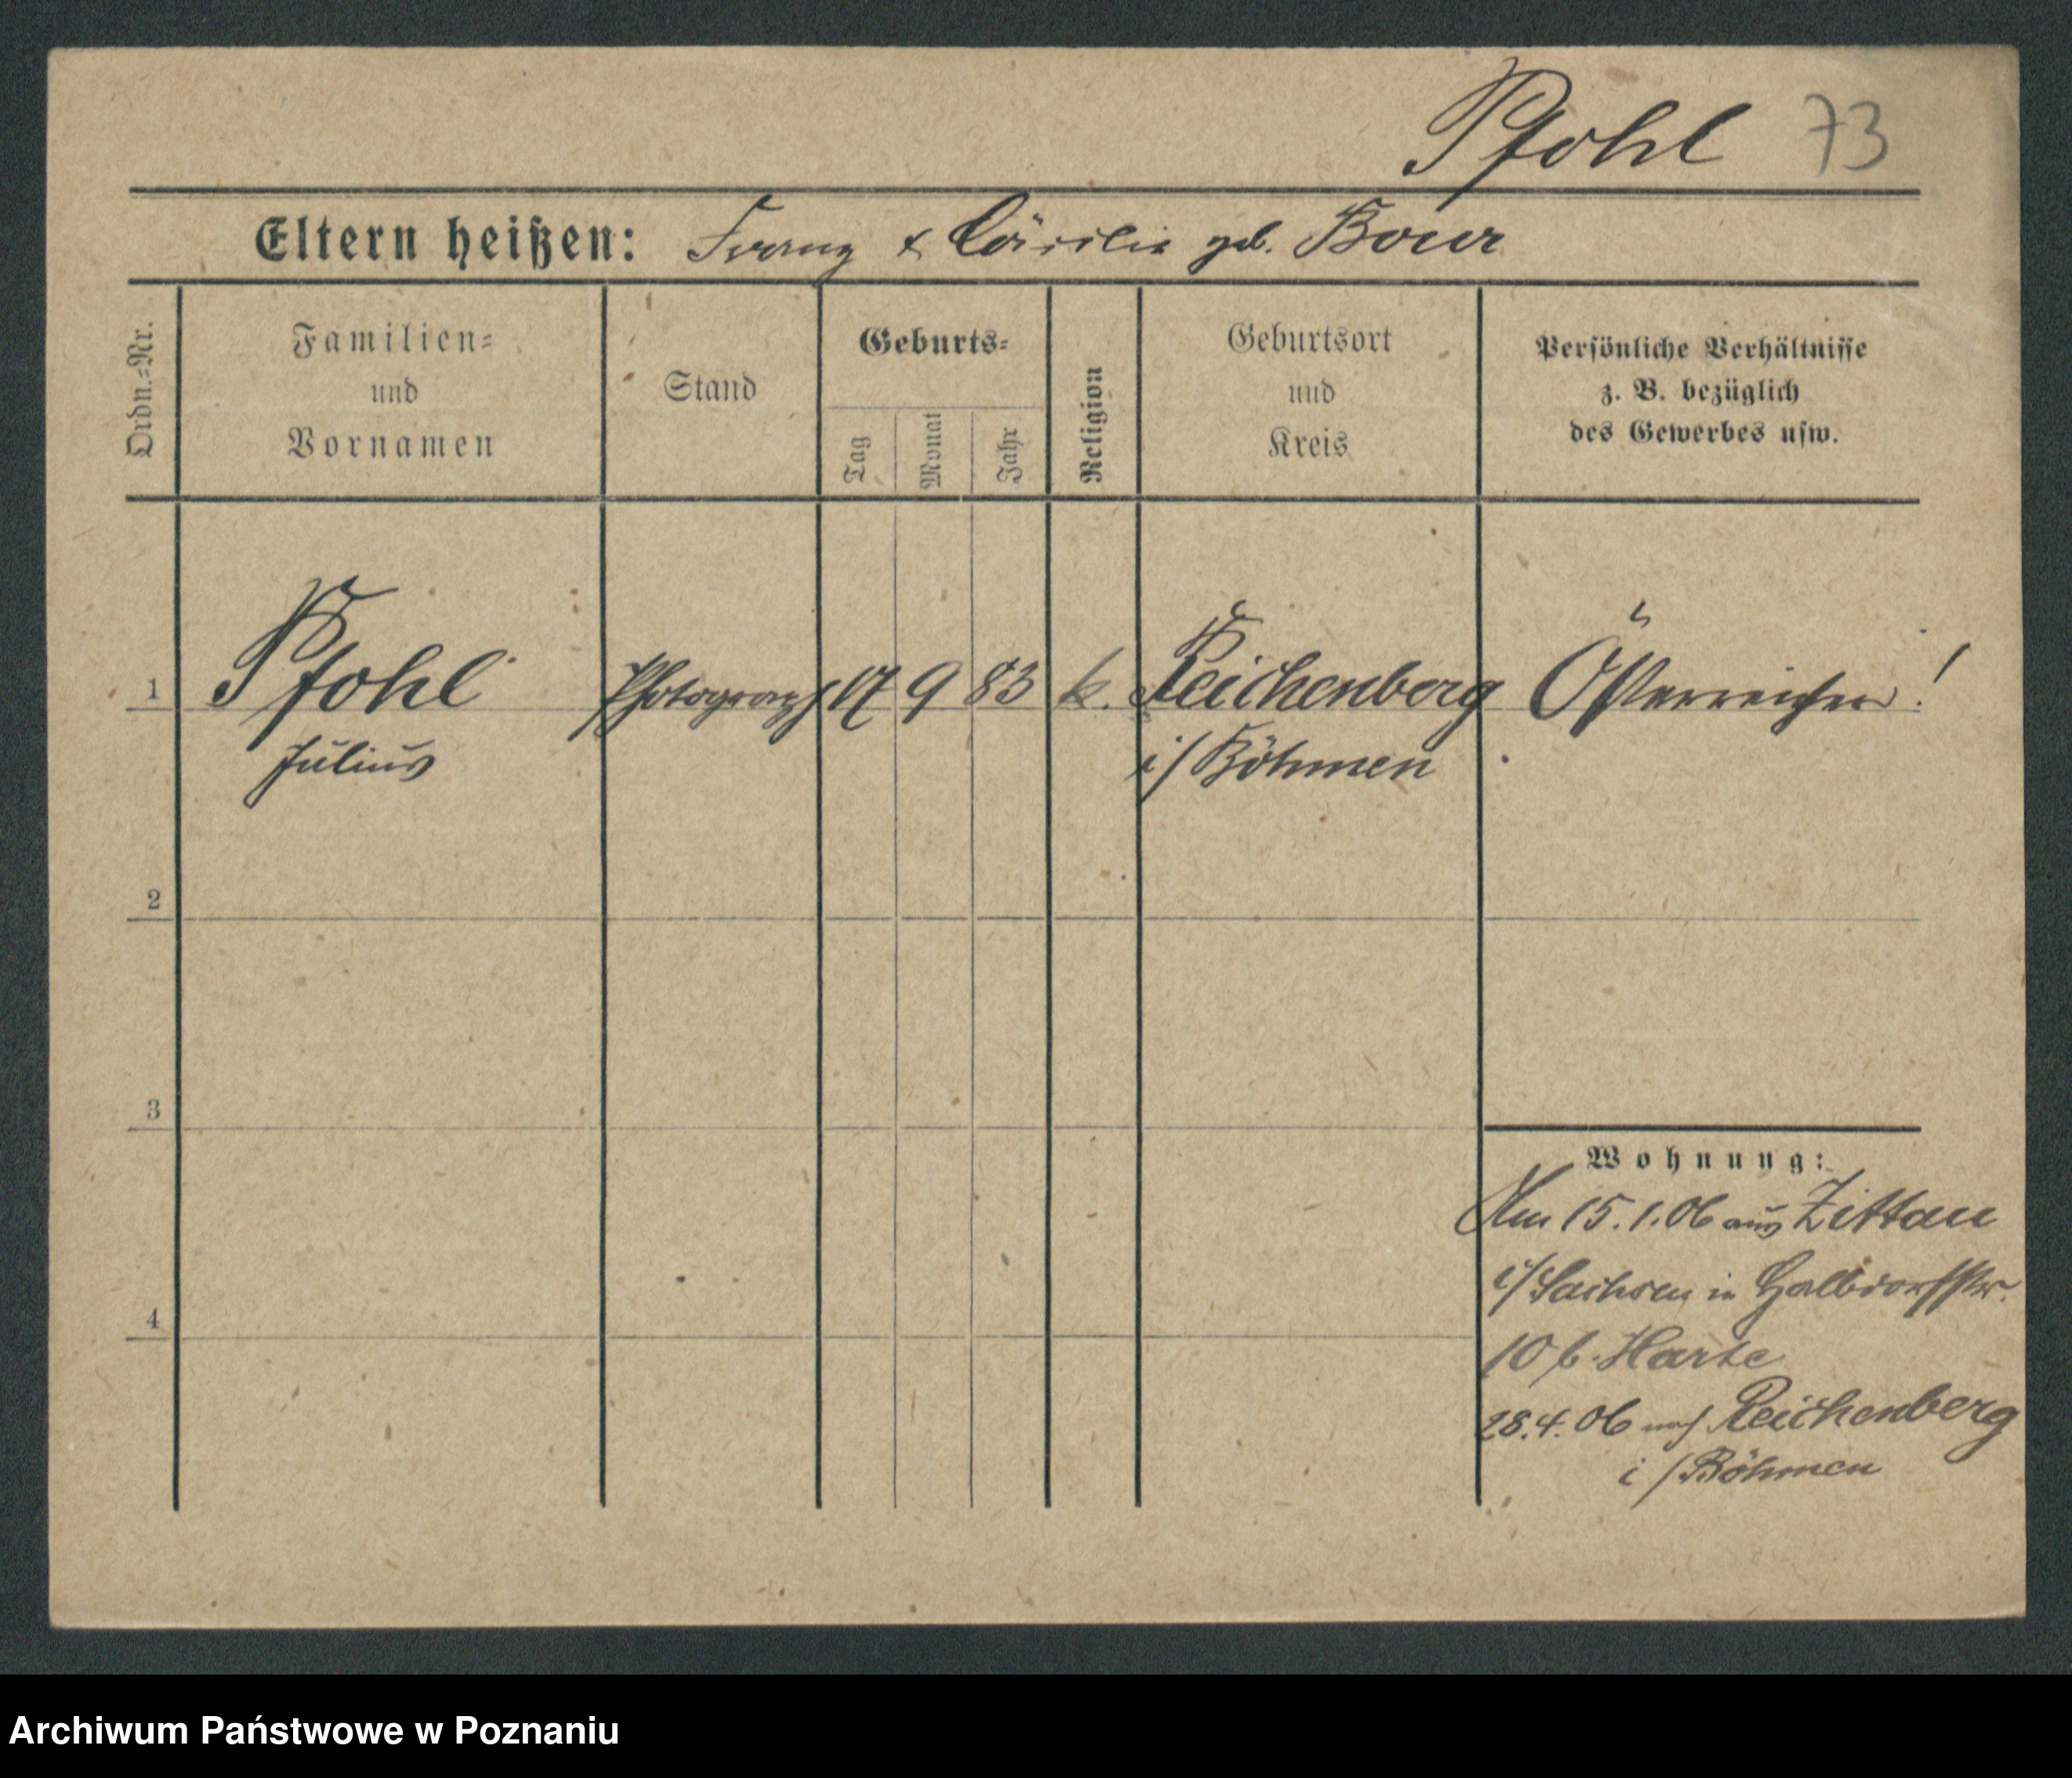 Pfohl 73
Eltern heißen: Franz & Cäcilia geb. Bour
Ordn.=Nr.
Familien=
und
Vornamen
Stand
Geburts=
Tag
Monat
Jahr
Religion
Geburtsort
und
Kreis
Persönliche Verhältnisse
z. B. bezüglich
des Gewerbes usw.
1 Pfohl Photograph 17 9 83 k. Reichenberg Österreicher!
Julius i/Böhmen
2
3
4
Wohnung:
Am 15.1.06 aus Zittau
i/Sachsen in Halbdorfstr.
10 b. Harte
28.4.06 nach Reichenberg
i/Böhmen
Archiwum Państwowe w Poznaniu